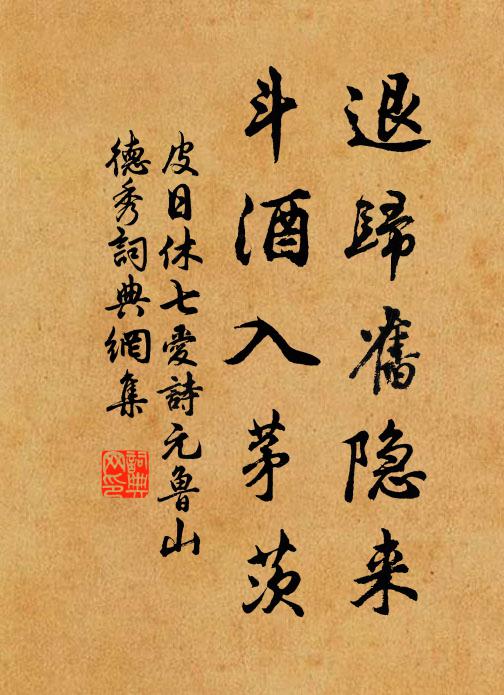 退歸舊隐来
斗酒入茅茨
皮日休七愛詩元魯山
德秀詞典網集
詞典网印